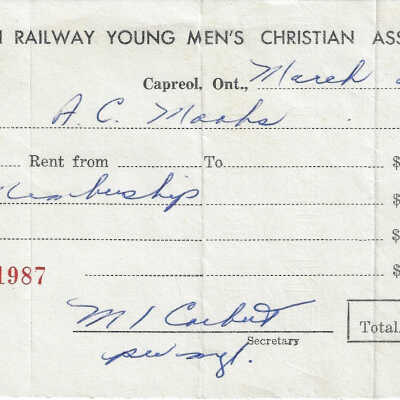 RAILWAY YOUNG MEN'S CHRISTIAN ASS
Capreol, Ont., March
A. C. Moahs
Rent from To $
Membership $
$
1987 $
M I Corbet Total
Secretary
per